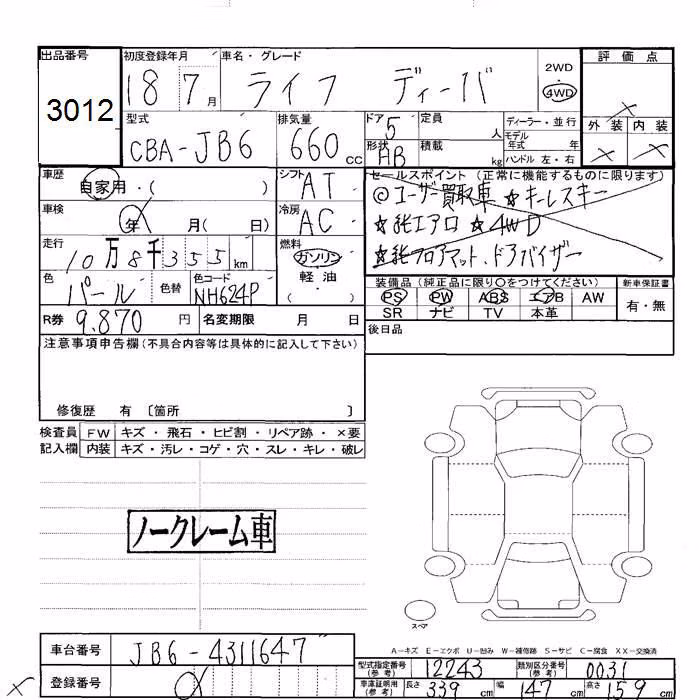 出品番号 初度登録年月 車名・グレード 評価点
3012 18 7月 ライフ ディーバ 2WD 4WD
型式 排気量 ドア 定員 ディーラー・並行 外装 内装
CBA-JB6 660cc 5 人 モデル年式 年
形状 HB 積載 kg ハンドル 左・右
車歴 シフト セールスポイント(正常に機能するものに限ります)
自家用・( ) AT ◎ユーザ買取車 ☆キーレスキー
車検 冷房 ☆純エアロ ☆4WD
年 月(日) AC ☆純フロアマット、ドアバイザー
走行 燃料
10万8千355km ガソリン
軽油・
( )
色 色替 色コード 装備品(純正品に限り○をつけてください) 新車保証書
パール NH624P PS PW ABS エアB AW 有・無
SR ナビ TV 本革
R券 9,870円 名変期限 月 日 後日品
注意事項申告欄(不具合内容等は具体的に記入して下さい)
修復歴 有 〔箇所 〕
検査員 FW キズ・飛石・ヒビ割・リペア跡・×要
記入欄 内装 キズ・汚レ・コゲ・穴・スレ・キレ・破レ
ノークレーム車
スペア
A-キズ E-エクボ U-凹み W-補修跡 S-サビ C-腐食 XX-交換済
車台番号 JB6-4311647
型式指定番号(参考) 12243 類別区分番号(参考) 0031
登録番号
車庫証明用(参考) 長さ 339cm 幅 147cm 高さ 159cm